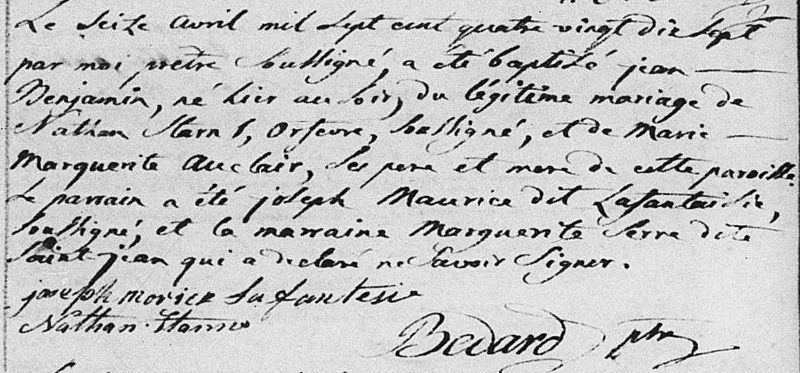 Le seize avril mil sept cent quatre vingt dix sept
par moi prêtre soussigné, a été baptisé jean
Benjamin, né hier au soir, du légitime mariage de
Nathan Starns, orfevre, soussigné, et de Marie
Marguerite Auclair, ses pere et mere de cette paroisse
Le parrain a été joseph Maurice dit Lafantaisie,
soussigné, et la marraine Marguerite Serre dite
Saint jean qui a declaré ne savoir signer.
joseph morice lafantesie
Nathan Starns
Bedard ptre